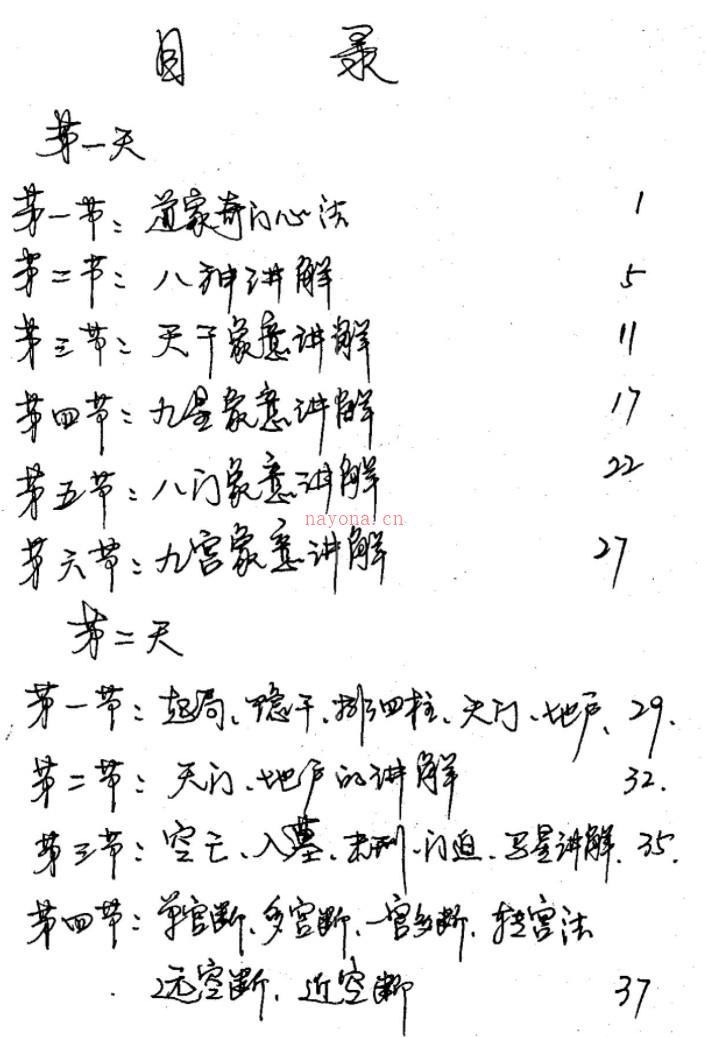 目 录
第一天
第一节：道家奇门心法 1
第二节：八神讲解 5
第三节：天干象意讲解 11
第四节：九星象意讲解 17
第五节：八门象意讲解 22
nayona.cn
第六节：九宫象意讲解 27
第二天
第一节：起局、隐干、排四柱、天门、地户、29.
第二节：天门、地户的讲解 32.
第三节：空亡、入墓、击刑、门迫、马星讲解、35.
第四节：单宫断、多宫断、一宫多断、转宫法
远空断、近空断 37